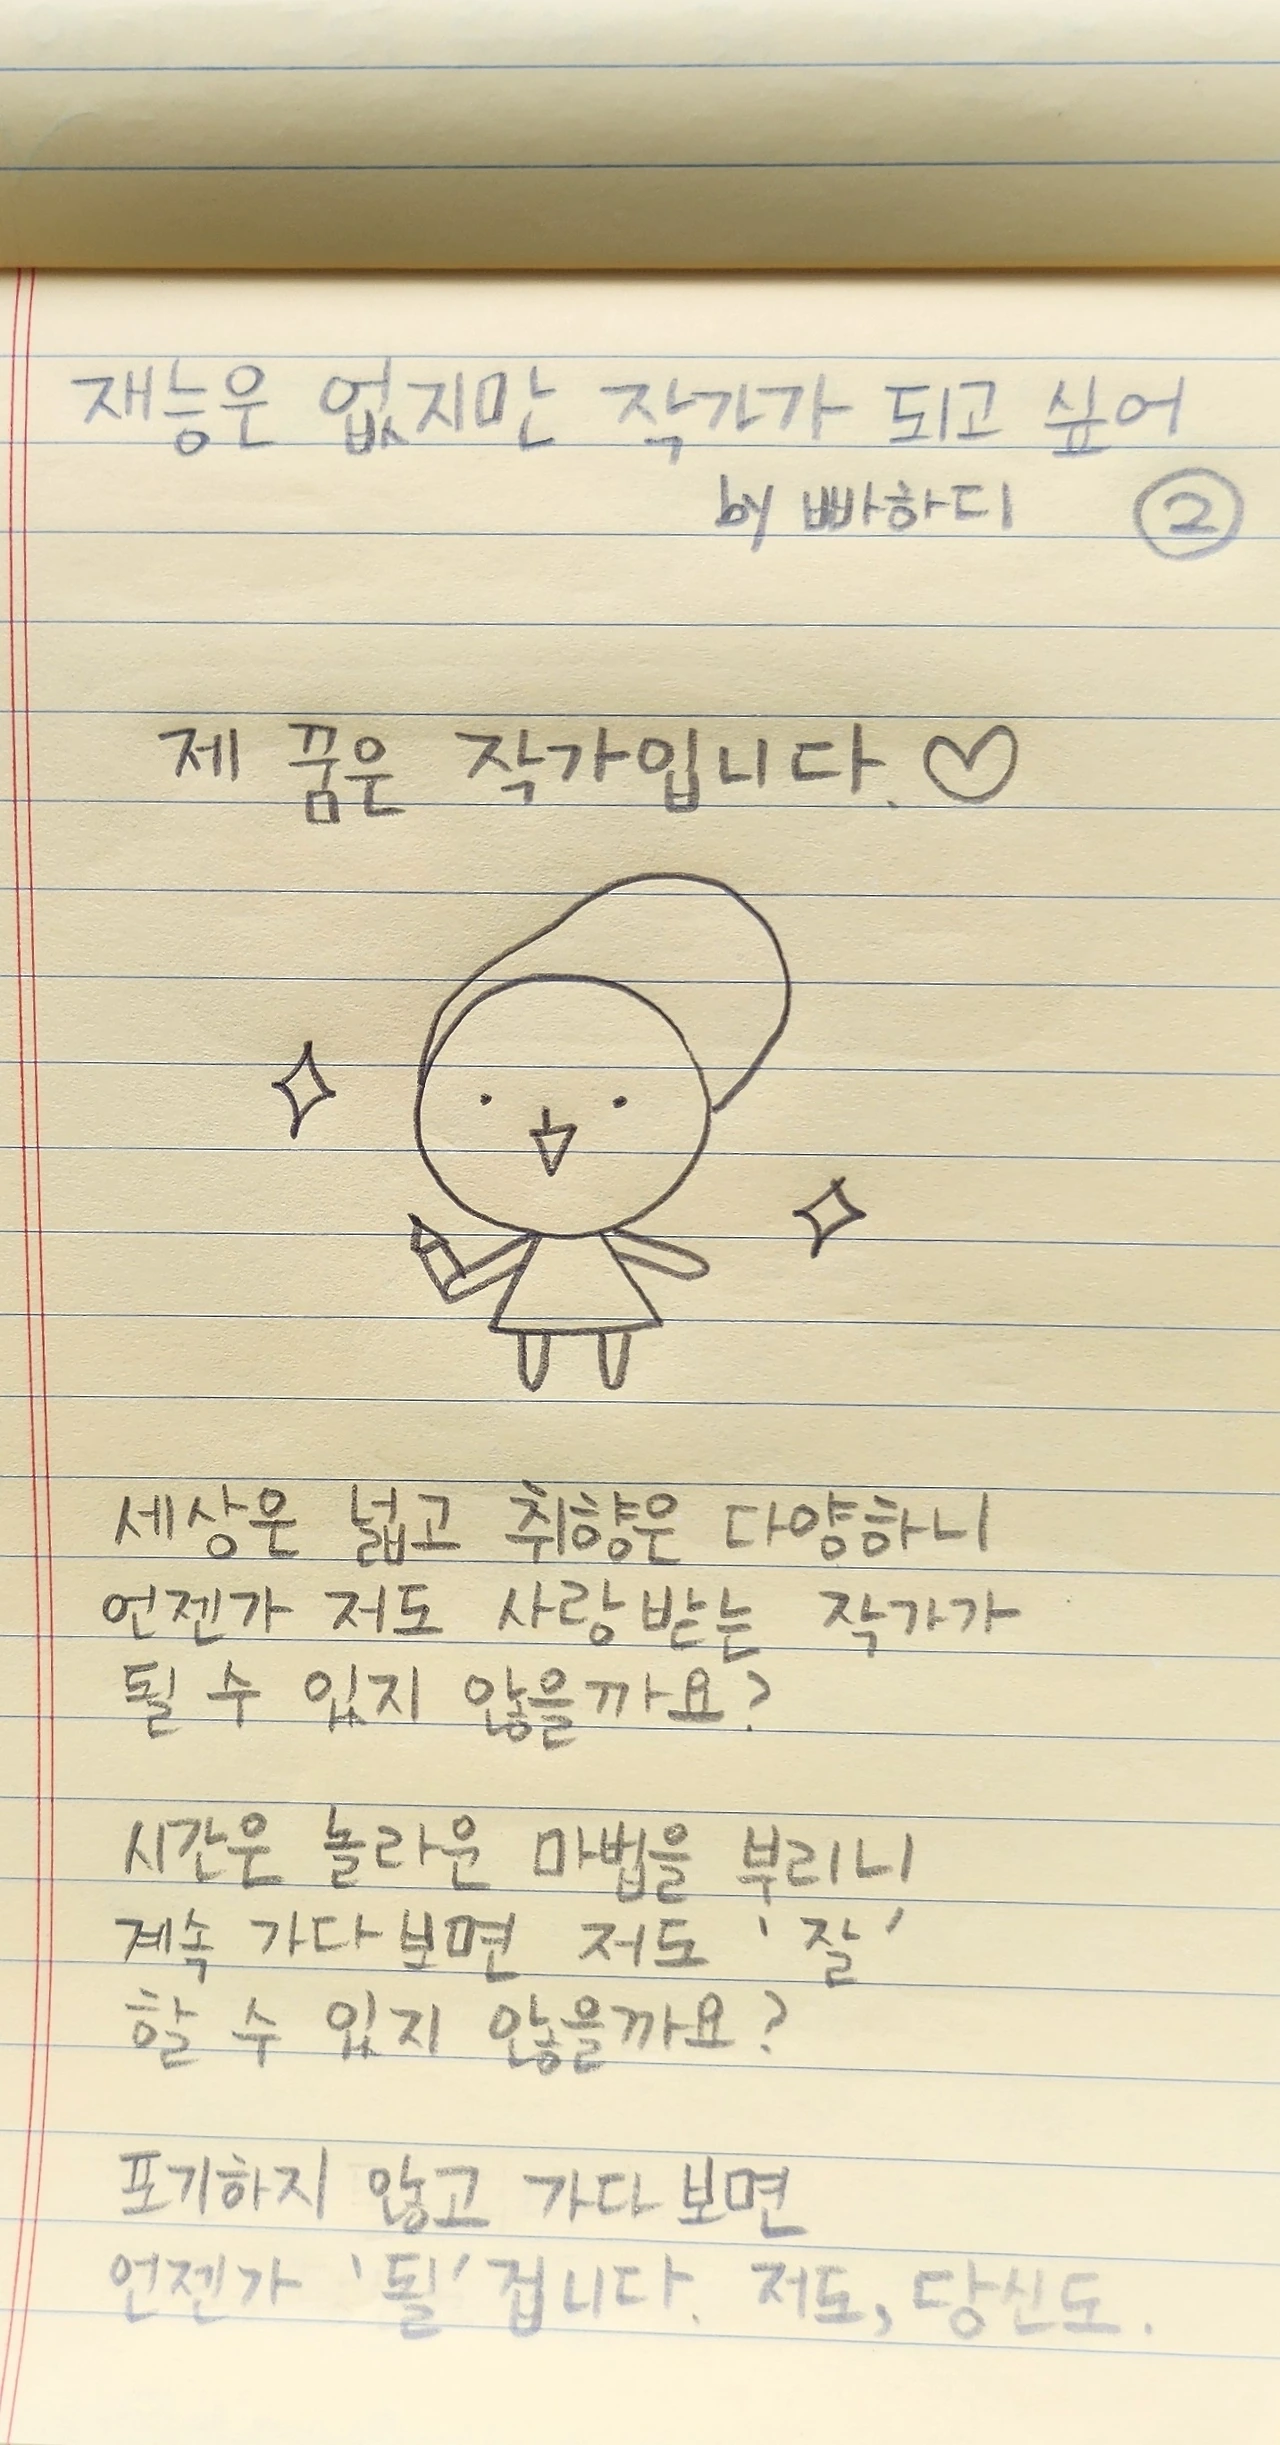 재능은 없지만 작가가 되고 싶어
by 빠하디 ②
제 꿈은 작가입니다.♡
세상은 넓고 취향은 다양하니
언젠가 저도 사랑받는 작가가
될 수 있지 않을까요?
시간은 놀라운 마법을 부리니
계속 가다보면 저도 '잘'
할 수 있지 않을까요?
포기하지 않고 가다보면
언젠가 '될' 겁니다. 저도, 당신도.